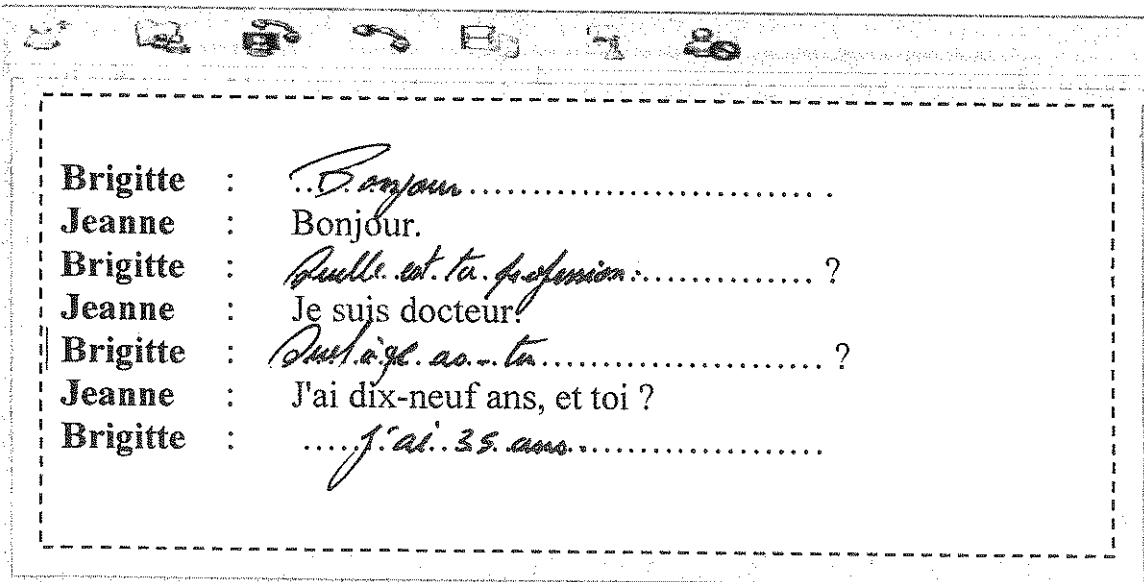 Brigitte : ..Bonjour..............................
Jeanne : Bonjour.
Brigitte : Quelle est ta profession................ ?
Jeanne : Je suis docteur.
Brigitte : Quel âge as-tu........................ ?
Jeanne : J'ai dix-neuf ans, et toi ?
Brigitte : .....j'ai 35 ans......................